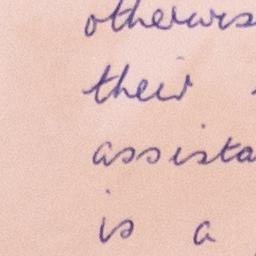 otherwis
their
assista
is a